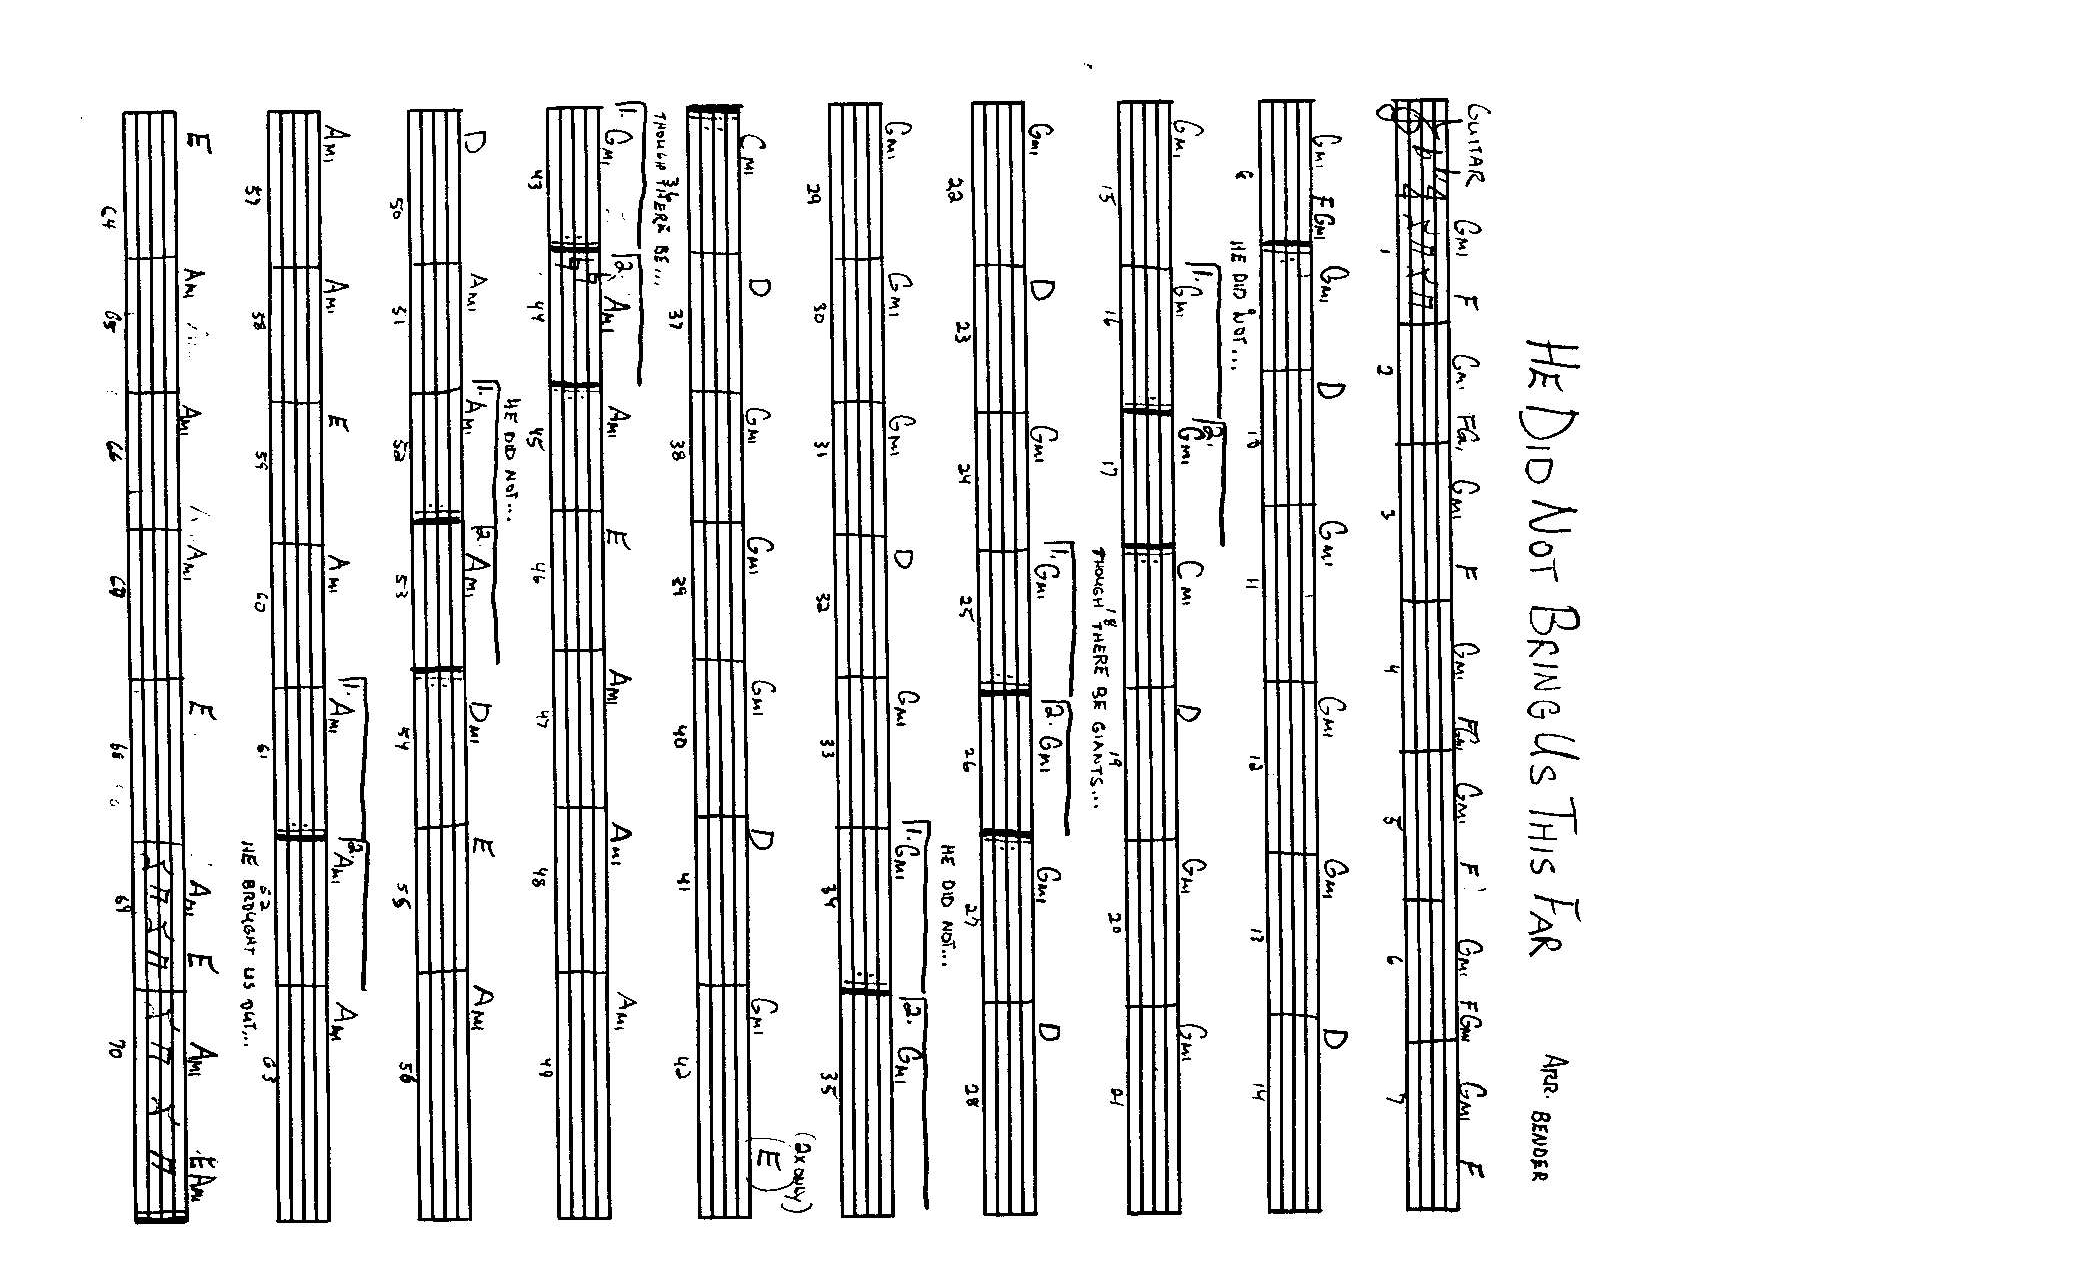 HE DID NOT BRING US THIS FAR ARR. BENDER
GUITAR GMI F GMI FGMI GMI F GMI FGMI GMI F GMI FGMI GMI F
4 4
1 2 3 4 5 6 7
GMI FGMI GMI D GMI GMI GMI D
8 10 11 12 13 14
HE DID NOT...
GMI 1. GMI 2. GMI CMI D GMI GMI
15 16 17 18 19 20 21
THOUGH THERE BE GIANTS...
GMI D GMI 1. GMI 2. GMI GMI D
22 23 24 25 26 27 28
HE DID NOT...
GMI GMI GMI D GMI 1. GMI 2. GMI
29 30 31 32 33 34 35
CMI D GMI GMI GMI D GMI (E) (2X ONLY)
36 37 38 39 40 41 42
THOUGH THERE BE...
1. GMI 2. AMI AMI E AMI AMI AMI
43 44 45 46 47 48 49
HE DID NOT...
D AMI 1. AMI 2. AMI DMI E AMI
50 51 52 53 54 55 56
AMI AMI E AMI 1. AMI 2. AMI AM
57 58 59 60 61 62 63
HE BROUGHT US OUT...
E AMI AMI AMI E AMI E AMI EAMI
64 65 66 67 68 69 70